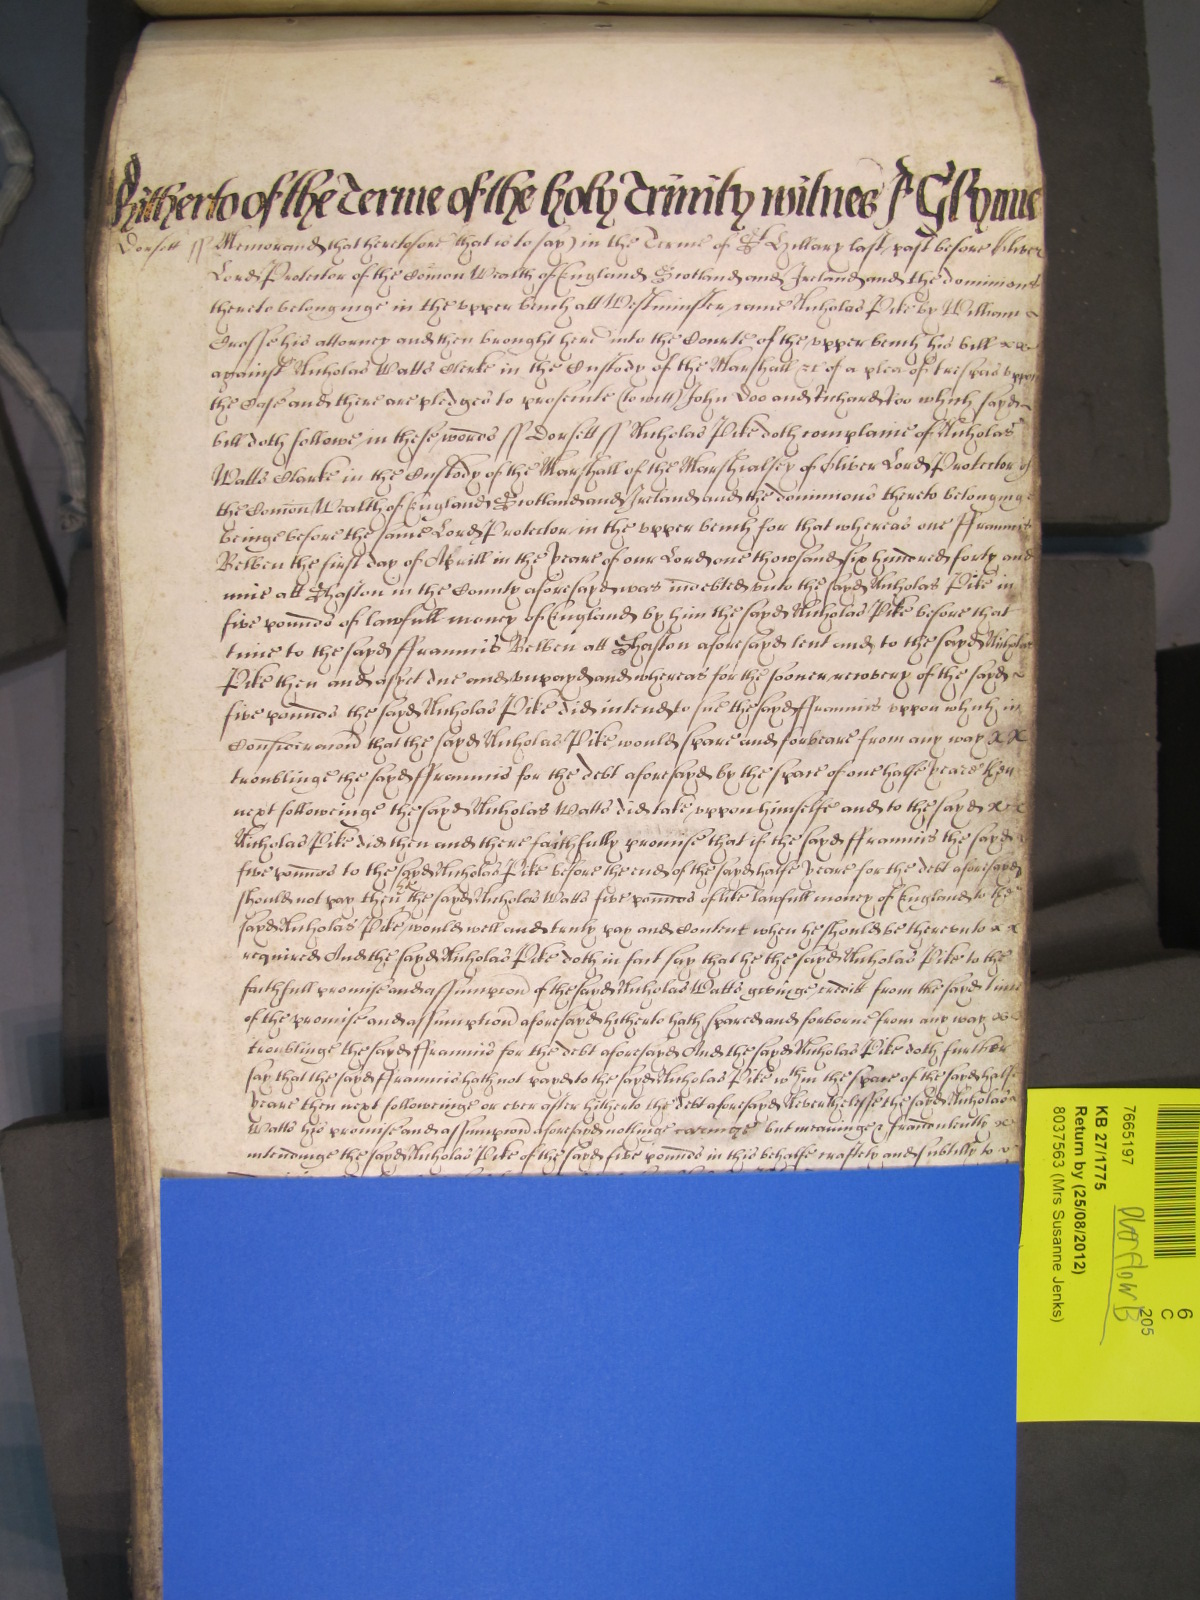 Hitherto of the Terme of the holy Trinity witnes J Glynne
Dorsett ss Memorand that heretofore that is to say) in the Terme of St Hillary last past before Oliver
Lord Protector of the Comon Wealth of England Scotland and Ireland and the dominions
thereto belonginge in the upper bench att Westminster came Nicholas Pike by William
Crosse his attorney and then brought here into the Courte of the upper bench his bill
against Nicholas Watts Clerke in the Custody of the Marshall &c of a plea of trespas uppon
the Case and there are pledges to prosecute (to witt) John Doo and Richard Roo which sayd
bill doth followe in these words ss Dorsett ss Nicholas Pike doth complaine of Nicholas
Watts Clarke in the Custody of the Marshall of the Marshialsey of Oliver Lord Protector of
the Comon Wealth of England Scotland and Ireland and the dominions thereto belonginge
beinge before the same Lord Protector in the upper bench for that whereas one Ffrancis
Belben the first day of Aprill in the yeare of our Lord one thowsand six hundred forty and
nine att Shaston in the County aforesayd was indebted unto the sayd Nicholas Pike in
five pounds of lawfull money of England by him the sayd Nicholas Pike before that
time to the sayd Ffrancis Belben att Shaston aforesayd lent and to the sayd Nicholas
Pike then and as yet due and unpayd and whereas for the sooner recovery of the sayd
five pounds the sayd Nicholas Pike did intend to sue the sayd Ffrancis uppon which in
Consideracion that the sayd Nicholas Pike would spare and forbeare from any way
troublinge the sayd Ffrancis for the debt aforesayd by the space of one halfe yeare then
next followeinge the sayd Nicholas Watts did take uppon himselfe and to the sayd
Nicholas Pike did then and there faithfully promise that if the sayd Ffrancis the sayd
five pounds to the sayd Nicholas Pike before the end of the sayd halfe yeare for the debt aforesayd
should not pay then he the sayd Nicholas Watts five pounds of like lawfull money of England to the
sayd Nicholas Pike would well and truly pay and Content when he should be thereunto
required And the sayd Nicholas Pike doth in fact say that he the sayd Nicholas Pike to the
faithfull promise and assumpcion of the sayd Nicholas Watts givinge creditt from the sayd time
of the promise and assumption aforesayd hitherto hath spared and forborne from any way
troublinge the sayd Ffrancis for the debt aforesayd And the sayd Nicholas Pike doth further
say that the sayd Ffrancis hath not payd to the sayd Nicholas Pike wthin the space of the sayd halfe
yeare then next followeinge or ever after hitherto the debt aforesayd Neverthelesse the sayd Nicholas
Watts his promise and assumpcion aforesayd nothinge caringe but meaninge & fraudulently
intendinge the sayd Nicholas Pike of the sayd five pounds in this behalfe craftely and subtilly to
7665197
KB 27/1775
Return by (25/08/2012)
8037563 (Mrs Susanne Jenks)
Overflow B
6
C
205